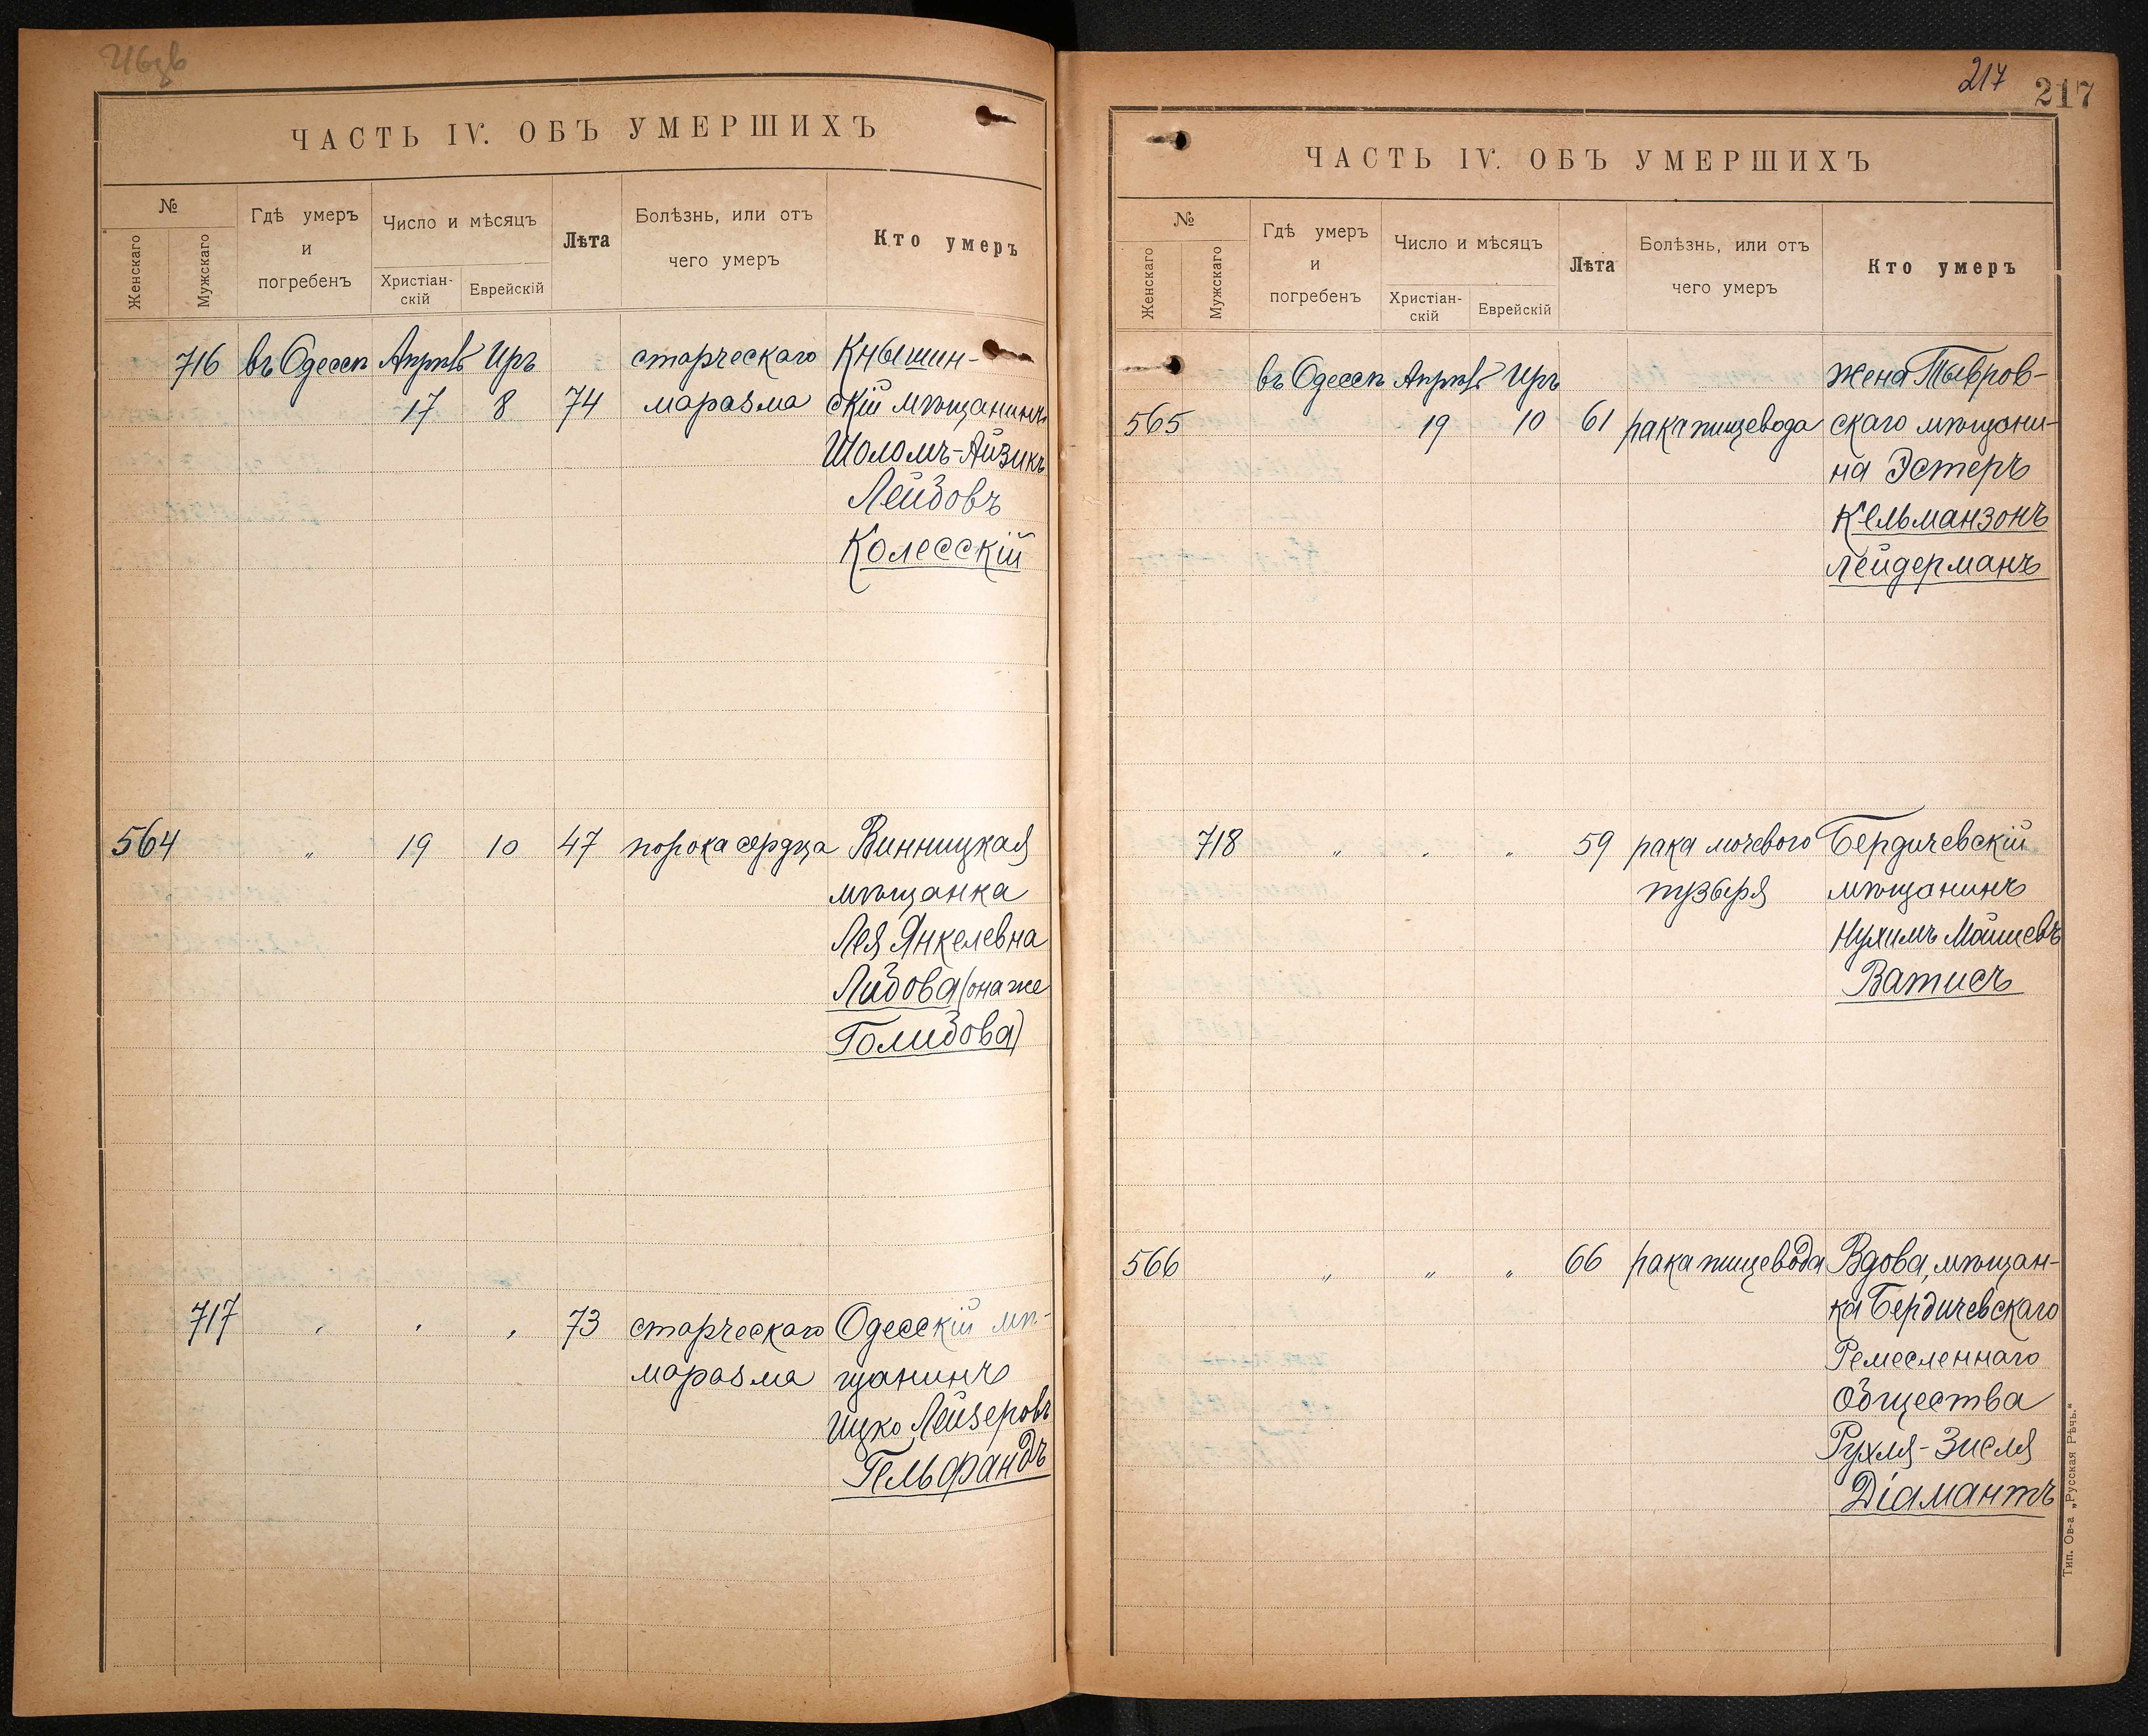 ЧАСТЬ IV. ОБЪ УМЕРШИХЪ
№
Женскаго
Мужскаго
Гдѣ умеръ
и
погребенъ
Число и мѣсяцъ
Христіан-
скій
Еврейскій
Лѣта
Болѣзнь, или отъ
чего умеръ
Кто умеръ
716 въ Одессѣ Апрѣль Иръ старческаго Кнышин-
17 8 74 маразма скій мѣщанинъ
Шоломъ-Айзикъ
Лейбовъ
Колесскій
564 " 19 10 47 порока сердца Винницкая
мѣщанка
Лея Янкелевна
Либова (она же
Голибова)
717 " " " 73 старческаго Одесскій мѣ-
маразма щанинъ
Ицко Лейзеровъ
Гельфандъ
217 217
ЧАСТЬ IV. ОБЪ УМЕРШИХЪ
№
Женскаго
Мужскаго
Гдѣ умеръ
и
погребенъ
Число и мѣсяцъ
Христіан-
скій
Еврейскій
Лѣта
Болѣзнь, или отъ
чего умеръ
Кто умеръ
въ Одессѣ Апрѣль Иръ жена Тывров-
565 19 10 61 рака пищевода скаго мѣщани-
на Эстеръ
Кельманзонъ
Лейдерманъ
718 " " " 59 рака мочевого Бердичевскій
пузыря мѣщанинъ
Нухимъ Мошиевъ
Ватисъ
566 " " " 66 рака пищевода Вдова, мѣщан-
ка Бердичевскаго
Ремесленнаго
Общества
Рухля-Зисля
Діамантъ
Тип. Ов-а „Русская Рѣчь."